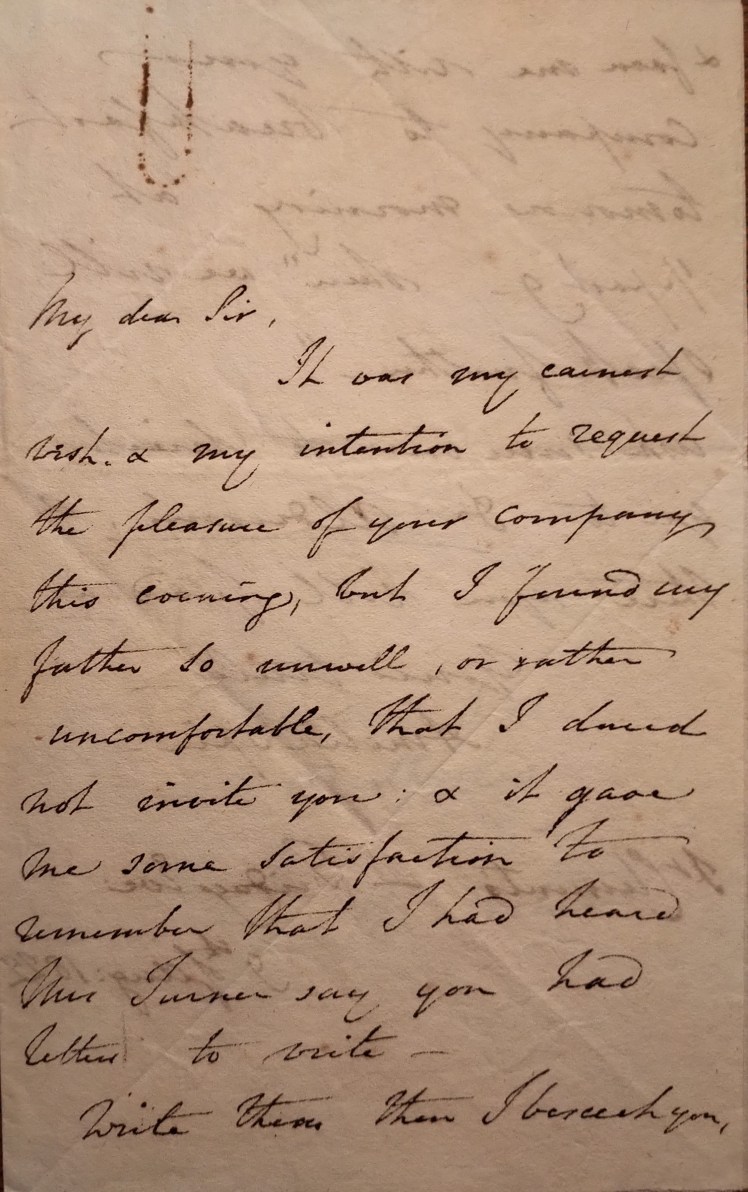 My dear Sir,
It was my earnest
wish. & my intention to request
the pleasure of your company
this evening, but I found my
father so unwell, or rather
uncomfortable, that I dared
not invite you: & it gave
me some satisfaction to
remember that I had heard
Mrs Turner say you had
letters to write —
Write them then I beseech you,